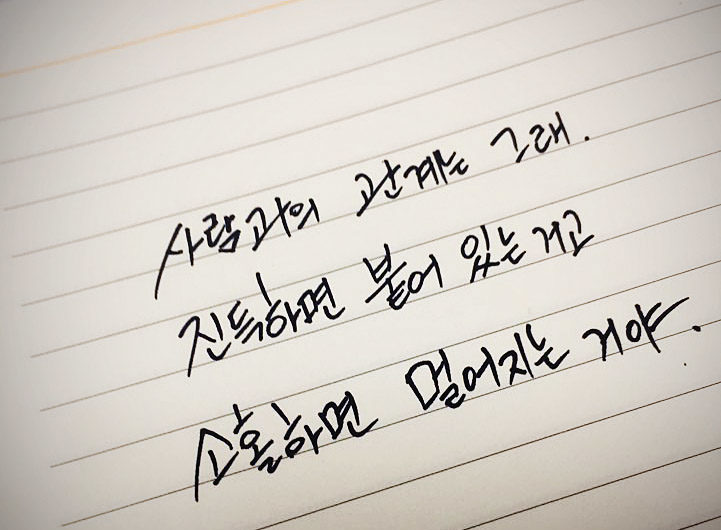 사람과의 관계는 그래.
진득하면 붙어 있는거고
소홀하면 멀어지는 거야.